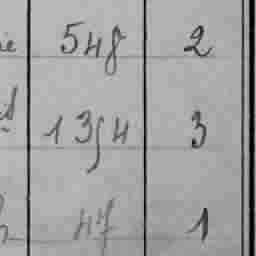 548 2
1354 3
47 1